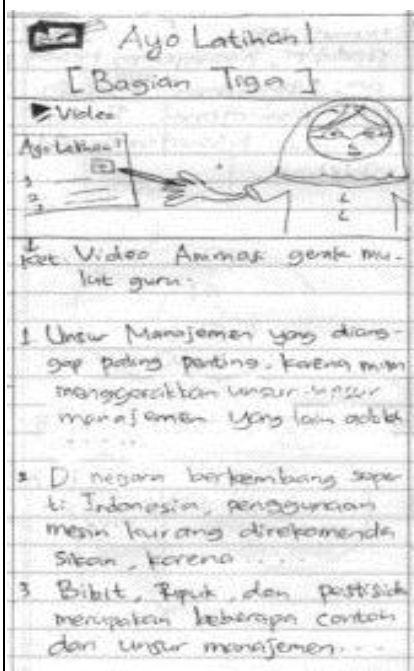 Ayo Latihan!
[Bagian Tiga]
Video
Ayo Latihan!
1
2
3
Ket. Video Animasi gerak mu-
lut guru.
1 Unsur Manajemen yang diang-
gap paling penting, karena
menggerakkan unsur-unsur
manajemen yang lain adalah
.....
2. Di negara berkembang seper
ti Indonesia, penggunaan
mesin kurang direkomenda
sikan, karena ....
3 Bibit, Pupuk, dan pestisida
merupakan beberapa contoh
dari unsur manajemen....